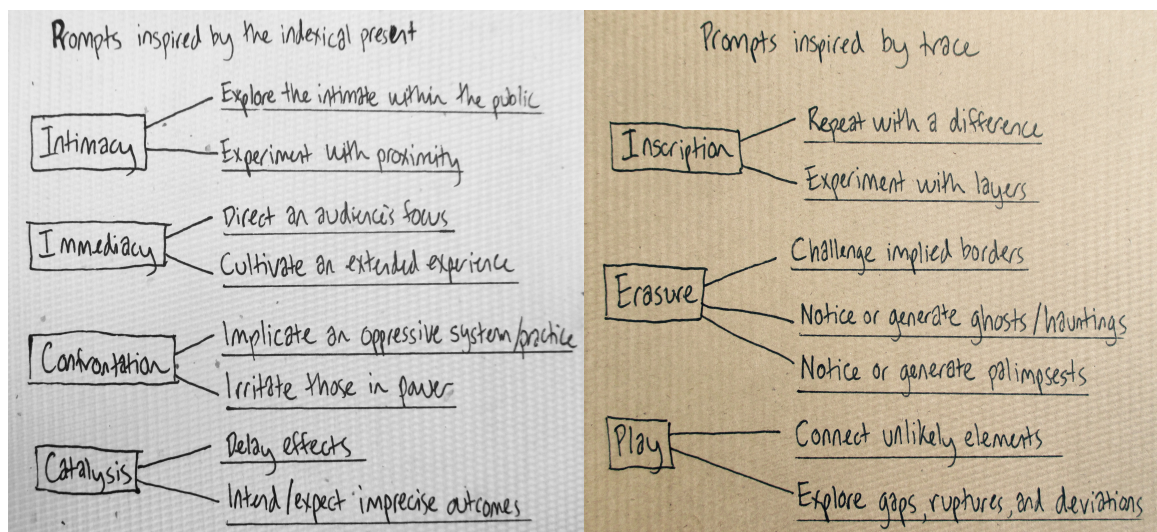 Prompts inspired by the indexical present
Intimacy
Explore the intimate within the public
Experiment with proximity
Immediacy
Direct an audience's focus
Cultivate an extended experience
Confrontation
Implicate an oppressive system/practice
Irritate those in power
Catalysis
Delay effects
Intend/expect imprecise outcomes
Prompts inspired by trace
Inscription
Repeat with a difference
Experiment with layers
Erasure
Challenge implied borders
Notice or generate ghosts/hauntings
Notice or generate palimpsests
Play
Connect unlikely elements
Explore gaps, ruptures, and deviations